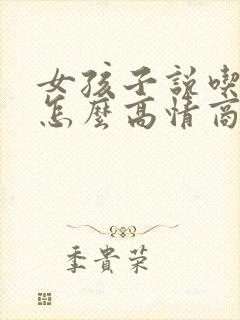 女孩子説喫
怎麼高情商
季貴荣